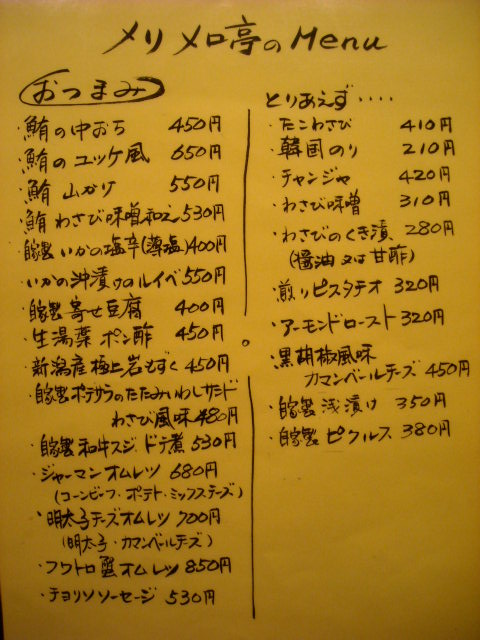 メリメロ亭のMenu
おつまみ
・鮪の中おち 450円
・鮪のユッケ風 650円
・鮪 山かけ 550円
・鮪 わさび味噌和え 530円
・自家製 いかの塩辛(薄塩) 400円
・いかの沖漬けのルイベ 550円
・自家製 寄せ豆腐 400円
・生湯葉 ポン酢 450円
・新潟産極上岩もずく 450円
・自家製ポテサラのたたみいわしサンド
わさび風味 480円
・自家製 和牛スジ ドテ煮 530円
・ジャーマンオムレツ 680円
(コーンビーフ・ポテト・ミックスチーズ)
・明太子チーズオムレツ 700円
(明太子・カマンベールチーズ)
・フワトロ蟹オムレツ 850円
・チョリソソーセージ 530円
とりあえず・・・・
・たこわさび 410円
・韓国のり 210円
・チャンジャ 420円
・わさび味噌 310円
・わさびのくき漬 280円
(醤油又は甘酢)
・煎りピスタチオ 320円
・アーモンドロースト 320円
・黒胡椒風味
カマンベールチーズ 450円
・自家製 浅漬け 350円
・自家製 ピクルス 380円